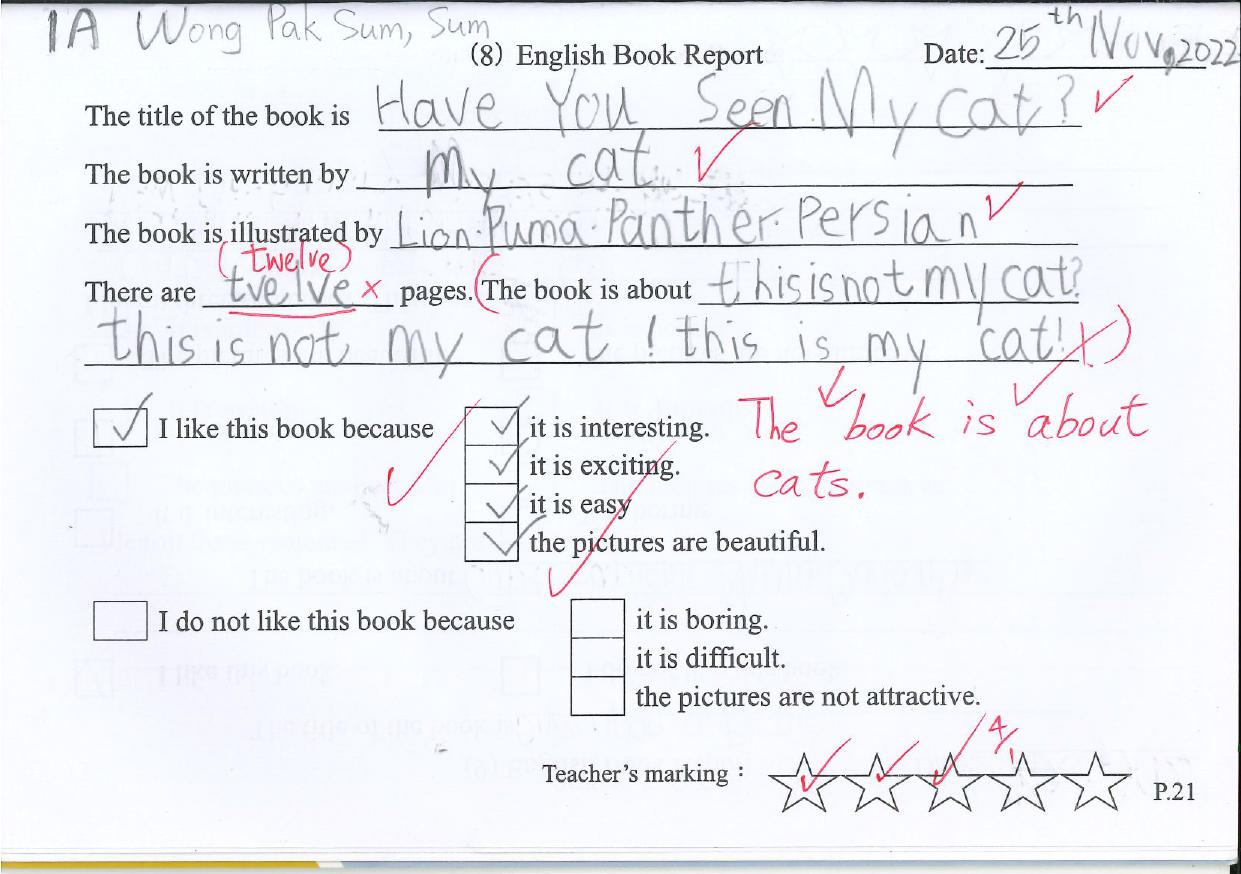 1A Wong Pak Sum, Sum
(8) English Book Report Date: 25th Nov, 2022
The title of the book is Have You Seen My Cat?
The book is written by my cat
The book is illustrated by Lion. Puma. Panther. Persian
(twelve)
There are tvelve pages. The book is about this is not my cat?
this is not my cat! this is my cat!
I like this book because it is interesting. The book is about
it is exciting. cats.
it is easy
the pictures are beautiful.
I do not like this book because it is boring.
it is difficult.
the pictures are not attractive.
Teacher's marking : P.21